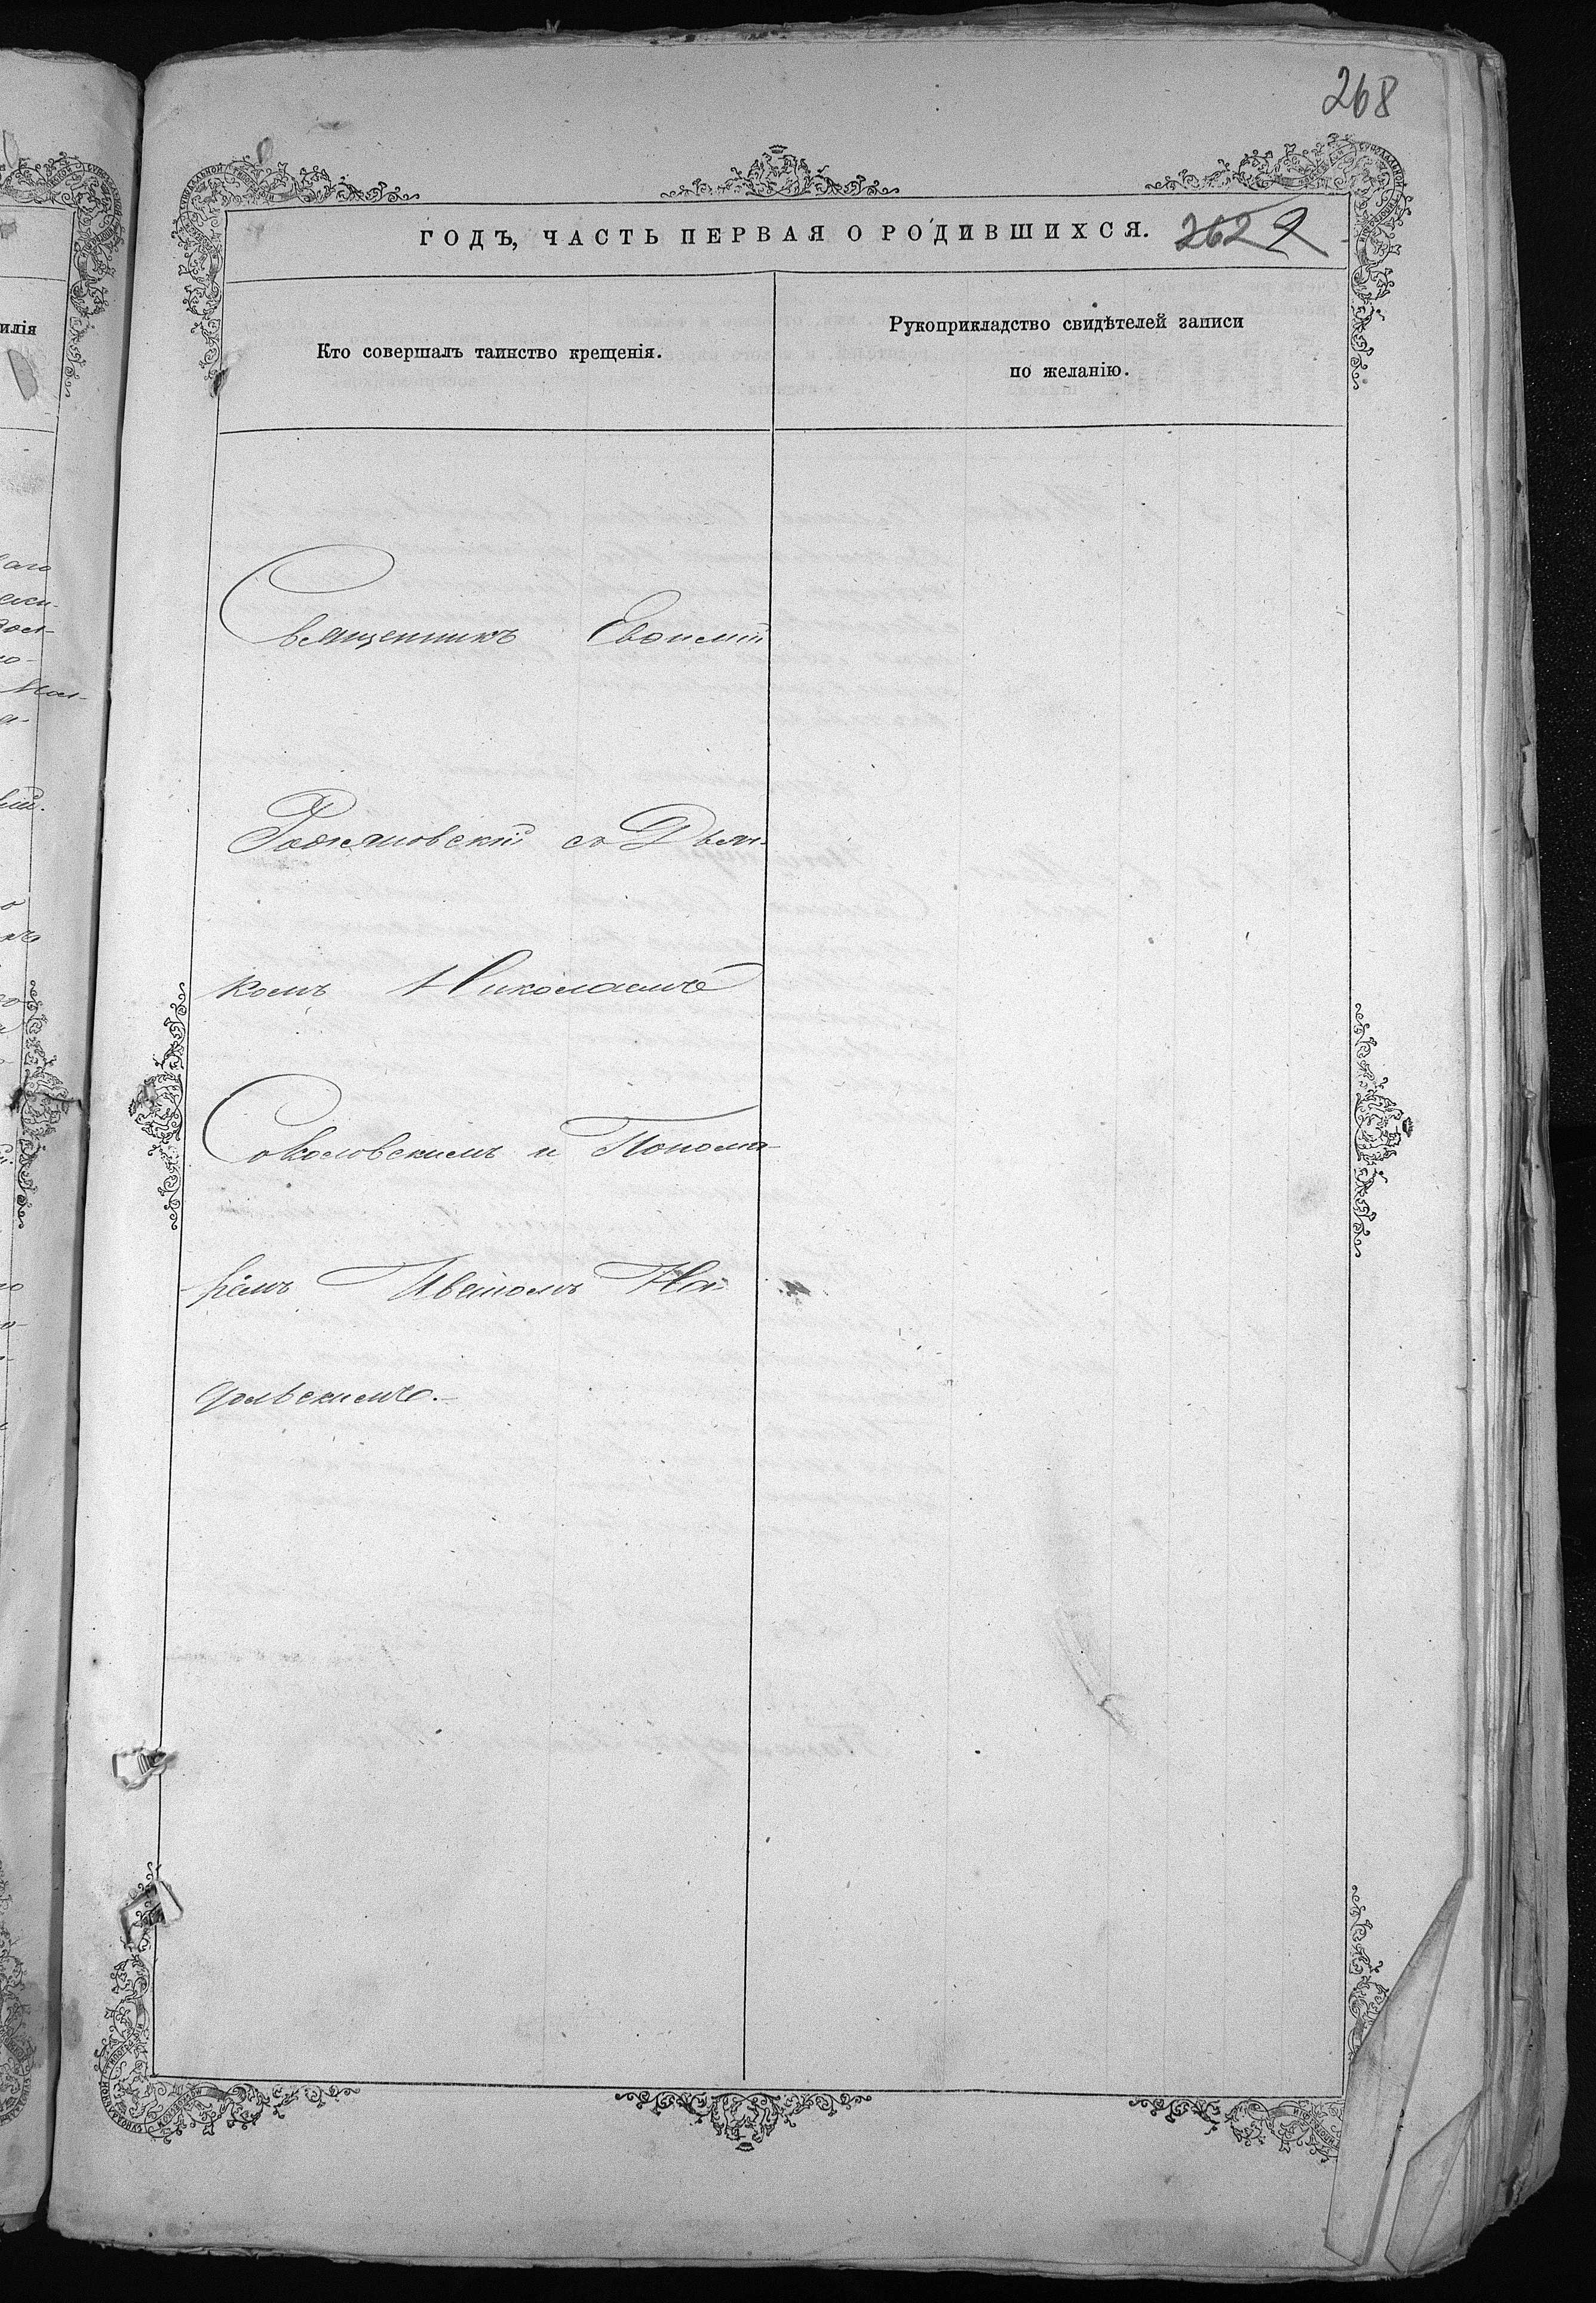 268
ГОДЪ, ЧАСТЬ ПЕРВАЯ О РОДИВШИХСЯ. 262
Кто совершалъ таинство крещенія.
Рукоприкладство свидѣтелей записи
по желанію.
Священникъ Евѳимій
съ Дьяч-
комъ Николаемъ
Соколовскимъ и Понома-
ремъ Иваномъ На-
дольскимъ.
илія